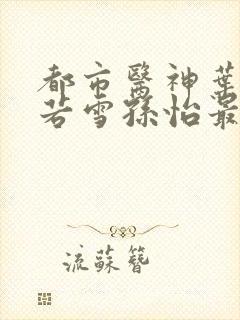 都市醫神葉
若雪孫怡最
流蘇簪